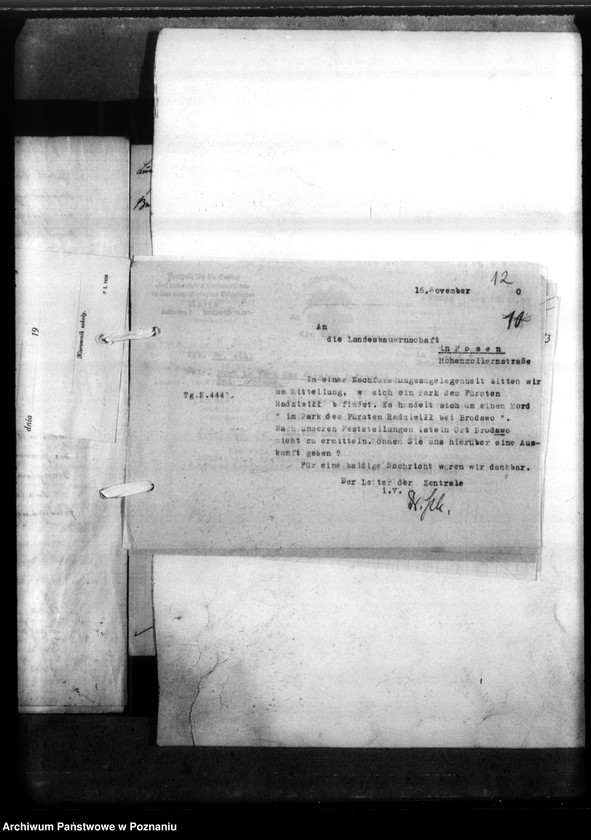 12
16.November 0
10
An
die Landesbauernschaft
in Posen
Hohenzollernstraße
Tg.N.444
In einer Nachforschungsangelegenheit bitten wir
um Mitteilung, wo sich ein Park des Fürsten
Radziwill b findet. Es handelt sich um einen Mord
" im Park des Fürsten Radziwill bei Brodawo ".
Nach unseren Feststellungen ist ein Ort Brodawo
nicht zu ermitteln. önnen Sie uns hierüber eine Aus-
kunft geben ?
Für eine baldige Nachricht wären wir dankbar.
Der Leiter der Zentrale
i.V.
19
dnia
Kierownik szkoły.
Archiwum Państwowe w Poznaniu